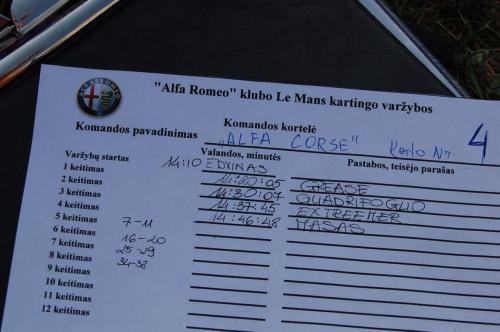 ALFA ROMEO
"Alfa Romeo" klubo Le Mans kartingo varžybos
Komandos kortelė
Komandos pavadinimas "ALFA CORSE" Karto Nr. 4
Valandos, minutės Pastabos, teisėjo parašas
Varžybų startas 14:10 EDVINAS
1 keitimas 14:20:05 GREASE
2 keitimas 14:30:07 QUADRIFOGLIO
3 keitimas 14:37:45 EXTREEMER
4 keitimas 14:46:48 MASAS
5 keitimas 7-11
6 keitimas 16-20
7 keitimas 25-29
8 keitimas 34-38
9 keitimas
10 keitimas
11 keitimas
12 keitimas